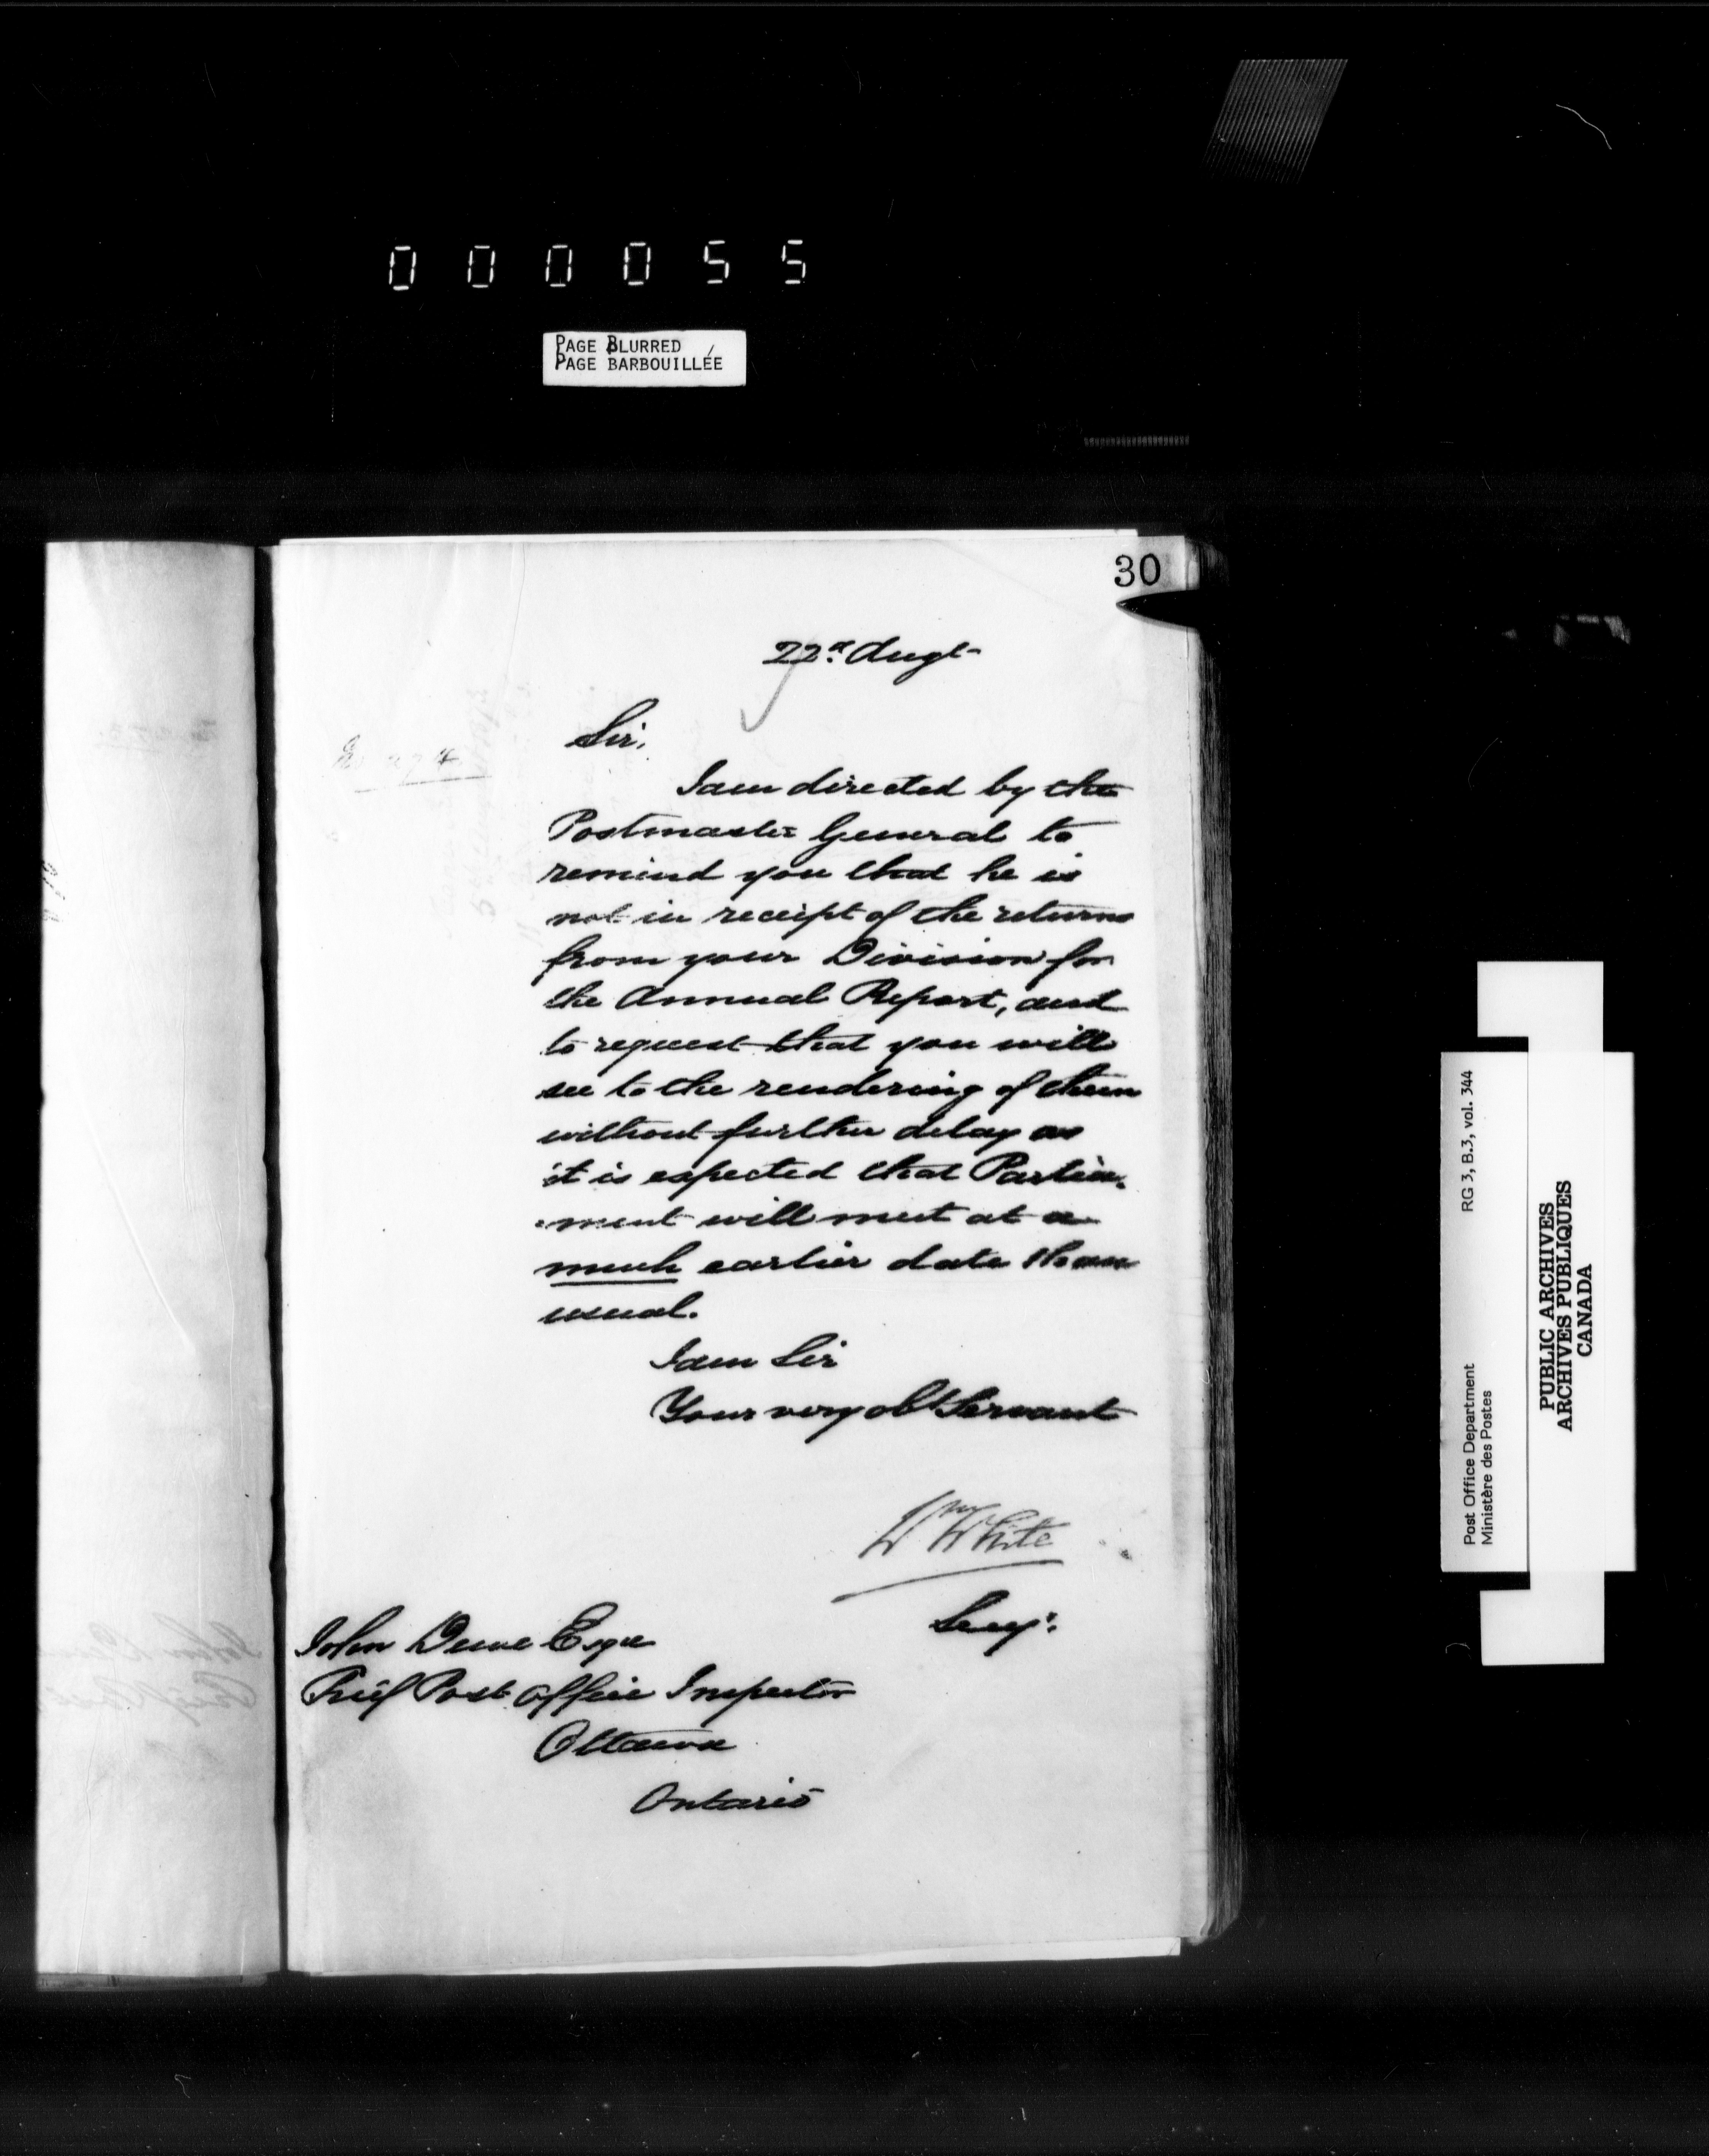 000055
PAGE BLURRED
PAGE BARBOUILLÉE
30
22nd Augt
Sir,
I am directed by the
Postmaster General to
remind you that he is
not in receipt of the returns
from your Division for
the Annual Report, and
to request that you will
see to the rendering of them
without further delay as
it is expected that Parlia-
-ment will meet at a
much earlier date than
usual.
I am Sir
Your very obt Servant
Wm White
Secy.
John Dewe Esqre
Chief Post Office Inspector
Ottawa
Ontario
Post Office Department RG 3, B.3, vol. 344
Ministère des Postes
PUBLIC ARCHIVES
ARCHIVES PUBLIQUES
CANADA